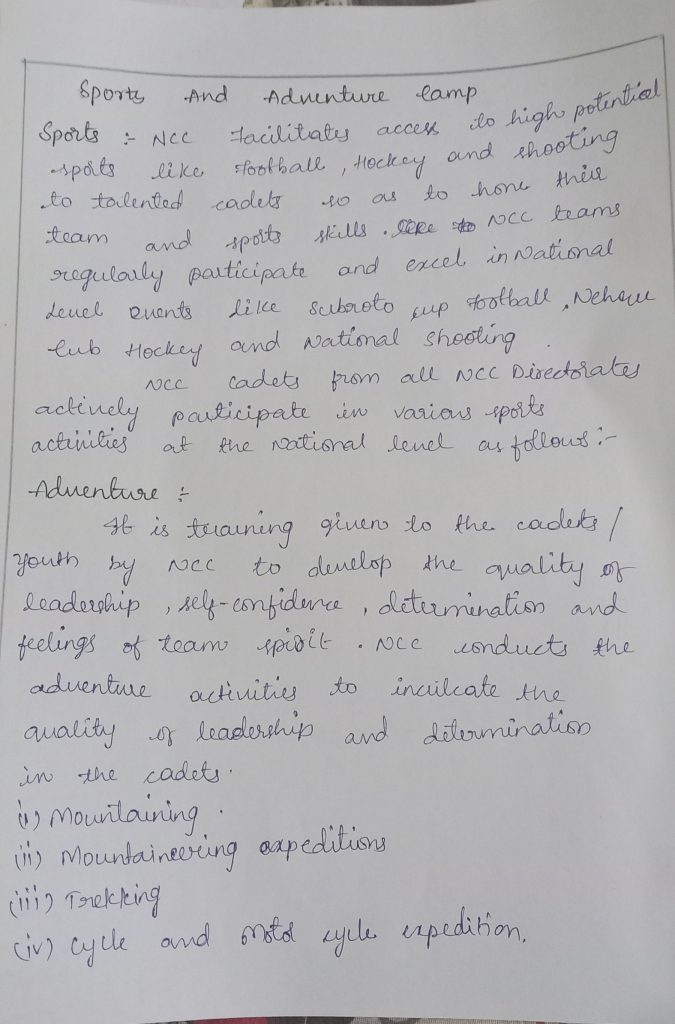 Sports And Adventure Camp
Sports :- NCC facilitates access to high potential
sports like football, Hockey and shooting
to talented cadets so as to hone their
team and sports skills. NCC teams
regularly participate and excel in National
level events like Subroto cup football, Nehru
Cub Hockey and National Shooting.
NCC cadets from all NCC Directorates
actively participate in various sports
activities at the National level as follows :-
Adventure :-
It is training given to the cadets/
Youth by NCC to develop the quality of
leadership, self-confidence, determination and
feelings of team spirit. NCC conducts the
adventure activities to inculcate the
quality of leadership and determination
in the cadets.
(i) Mountaining.
(ii) Mountaineering expeditions
(iii) Trekking
(iv) Cycle and Motor cycle expedition.